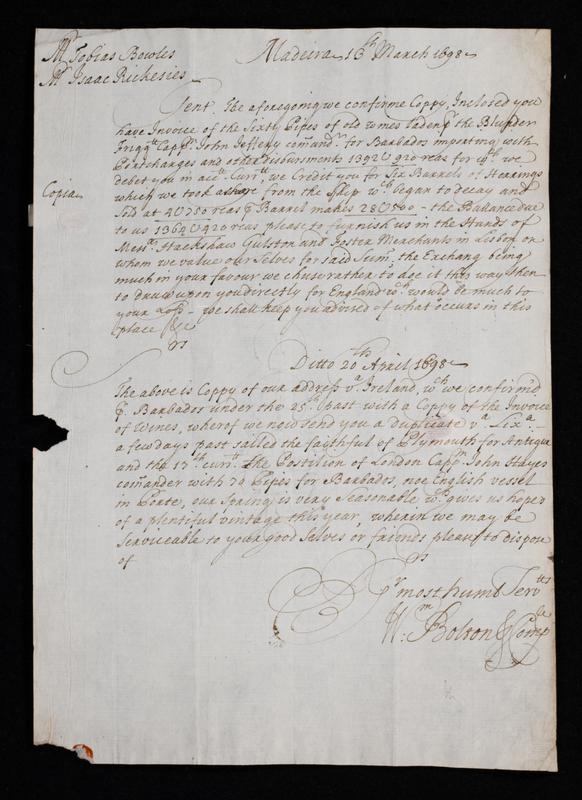 Mr Tobias Bowles
Mr Isaac Rickesies
Madeira 13th March 1698
Gent. The aforegoing we confirme Coppy, Inclosed you
have Invoice of the Sixty Pipes of old wines laden p the Blunder
Friggtt Cappt John Jeffery comandr for Barbados importing with
Portcharges and other disbursments 1392U920 reas for wch we
debet you in acctt Currtt, we Credit you for Six Barrels of Hearrings
Copia
which we took ashore from the Ship wch began to decay and
Sold at 4U750 reas p Barrel makes 28U500 - the Ballance due
to us 1364U420 reas please to furnish us in the Hands of
Messrs Hackshaw Gulston and Foster Merchants in Lisbon on
whom we value our Selves for said Sum, the Exchang being
much in your favour we chuse rather to doe it this way then
to draw upon you directly for England wch would be much to
your Loss - we shall keep you advised of what occurs in this
place &c
Ditto 20th Aprill 1698
The above is Coppy of our address va Ireland, wch we confirm'd
p Barbados under the 25th past with a Coppy of the Invoice
of Wines, whereof we now send you a duplicate va Lixa -
a few days past sailed the faithful of Plymouth for Antegua
and the 17th currtt the Postilion of London Cappn John Hayes
comander with 70 Pipes for Barbados, noe English vessel
in Porte, our Spring is very Seasonable wch gives us hopes
of a plentiful vintage this year, wherein we may be
Serviceable to your good Selves or friends please to dispose
of
Yr most humb Servtts
Wm: Bolton & Compe